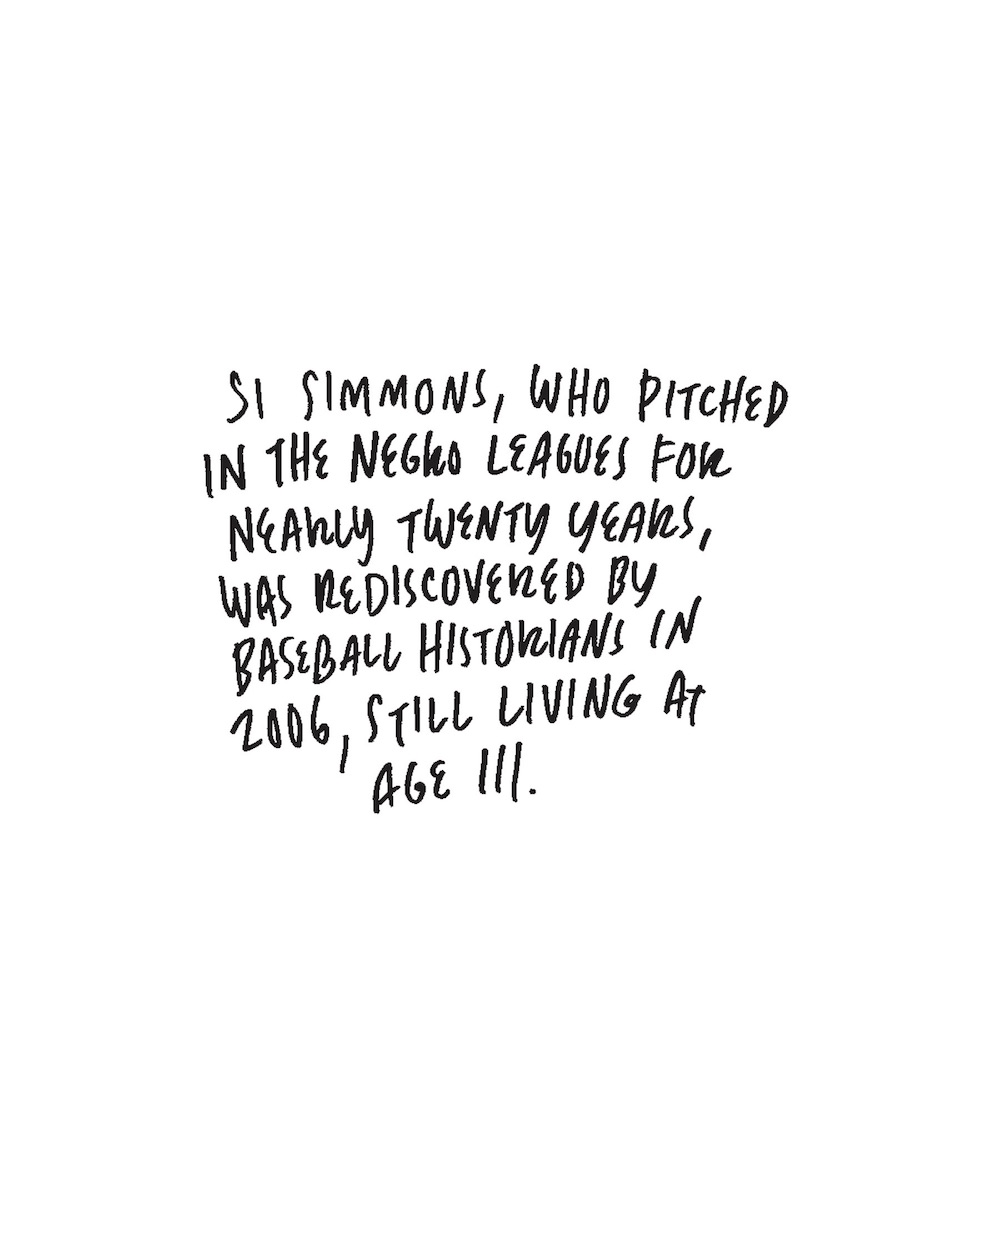 SI SIMMONS, WHO PITCHED
IN THE NEGRO LEAGUES FOR
NEARLY TWENTY YEARS,
WAS REDISCOVERED BY
BASEBALL HISTORIANS IN
2006, STILL LIVING AT
AGE 111.